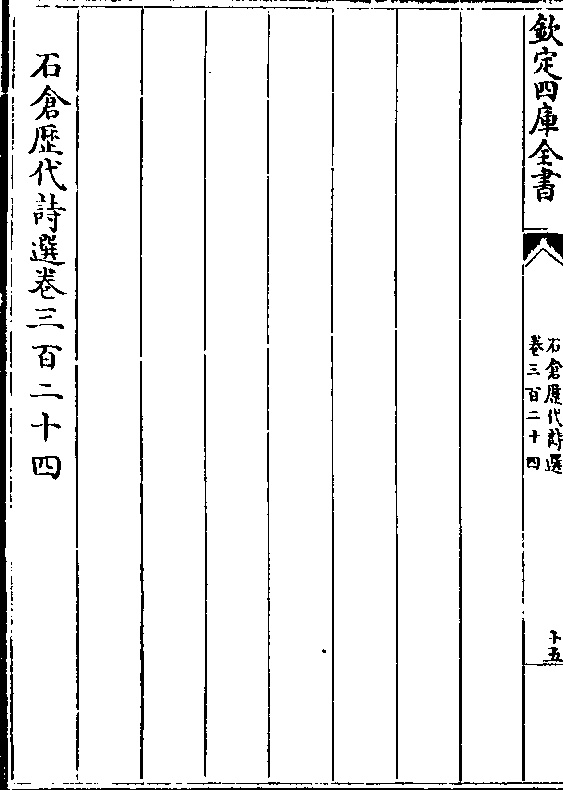 欽定四庫全書
石倉歷代詩選
卷三百二十四
十五
石倉歴代詩選卷三百二十四